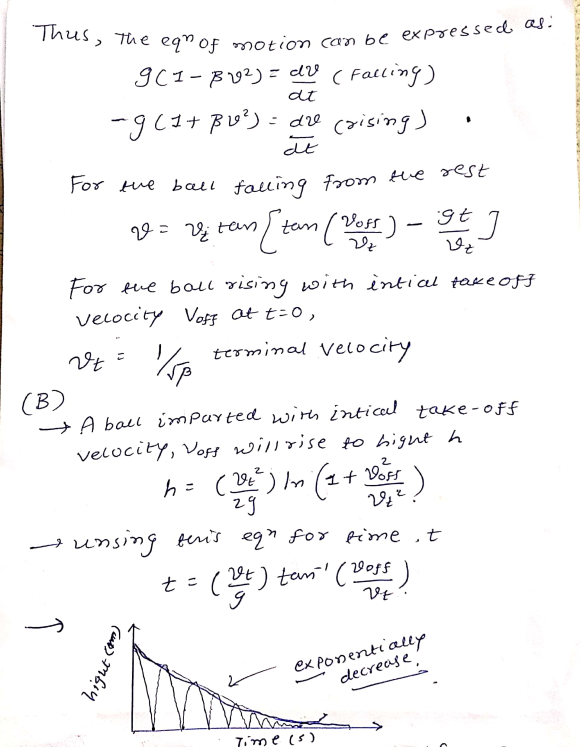 Thus, The eqn of motion can be expressed as:
g(1-βv²) = dv/dt (Falling)
-g(1+βv²) = dv/dt (rising).
For the ball falling from the rest
v = vt tan[tan(Voff/vt) - gt/vt]
For the ball rising with intial takeoff
velocity Voff at t=0,
vt = 1/√β terminal velocity
(B)
→ A ball imparted with intical take-off
velocity, Voff will rise to hight h
h = (vt²/2g) ln(1 + Voff²/vt²)
→ unsing this eqn for time, t
t = (vt/g) tan⁻¹(Voff/vt)
→
hight (cm)
exponentially
decrease.
Time (s)